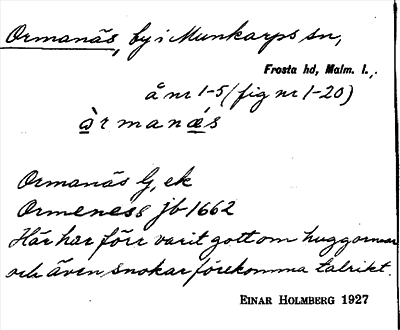 Ormanäs, by i Munkarps sn,
Frosta hd, Malm. l.,
å nr 1-5 (fig nr 1-20)
àrmanǽs
Ormanäs G, ek
Ormeness jb 1662
Här har förr varit gott om huggormar
och även snokar förekomma talrikt.
EINAR HOLMBERG 1927